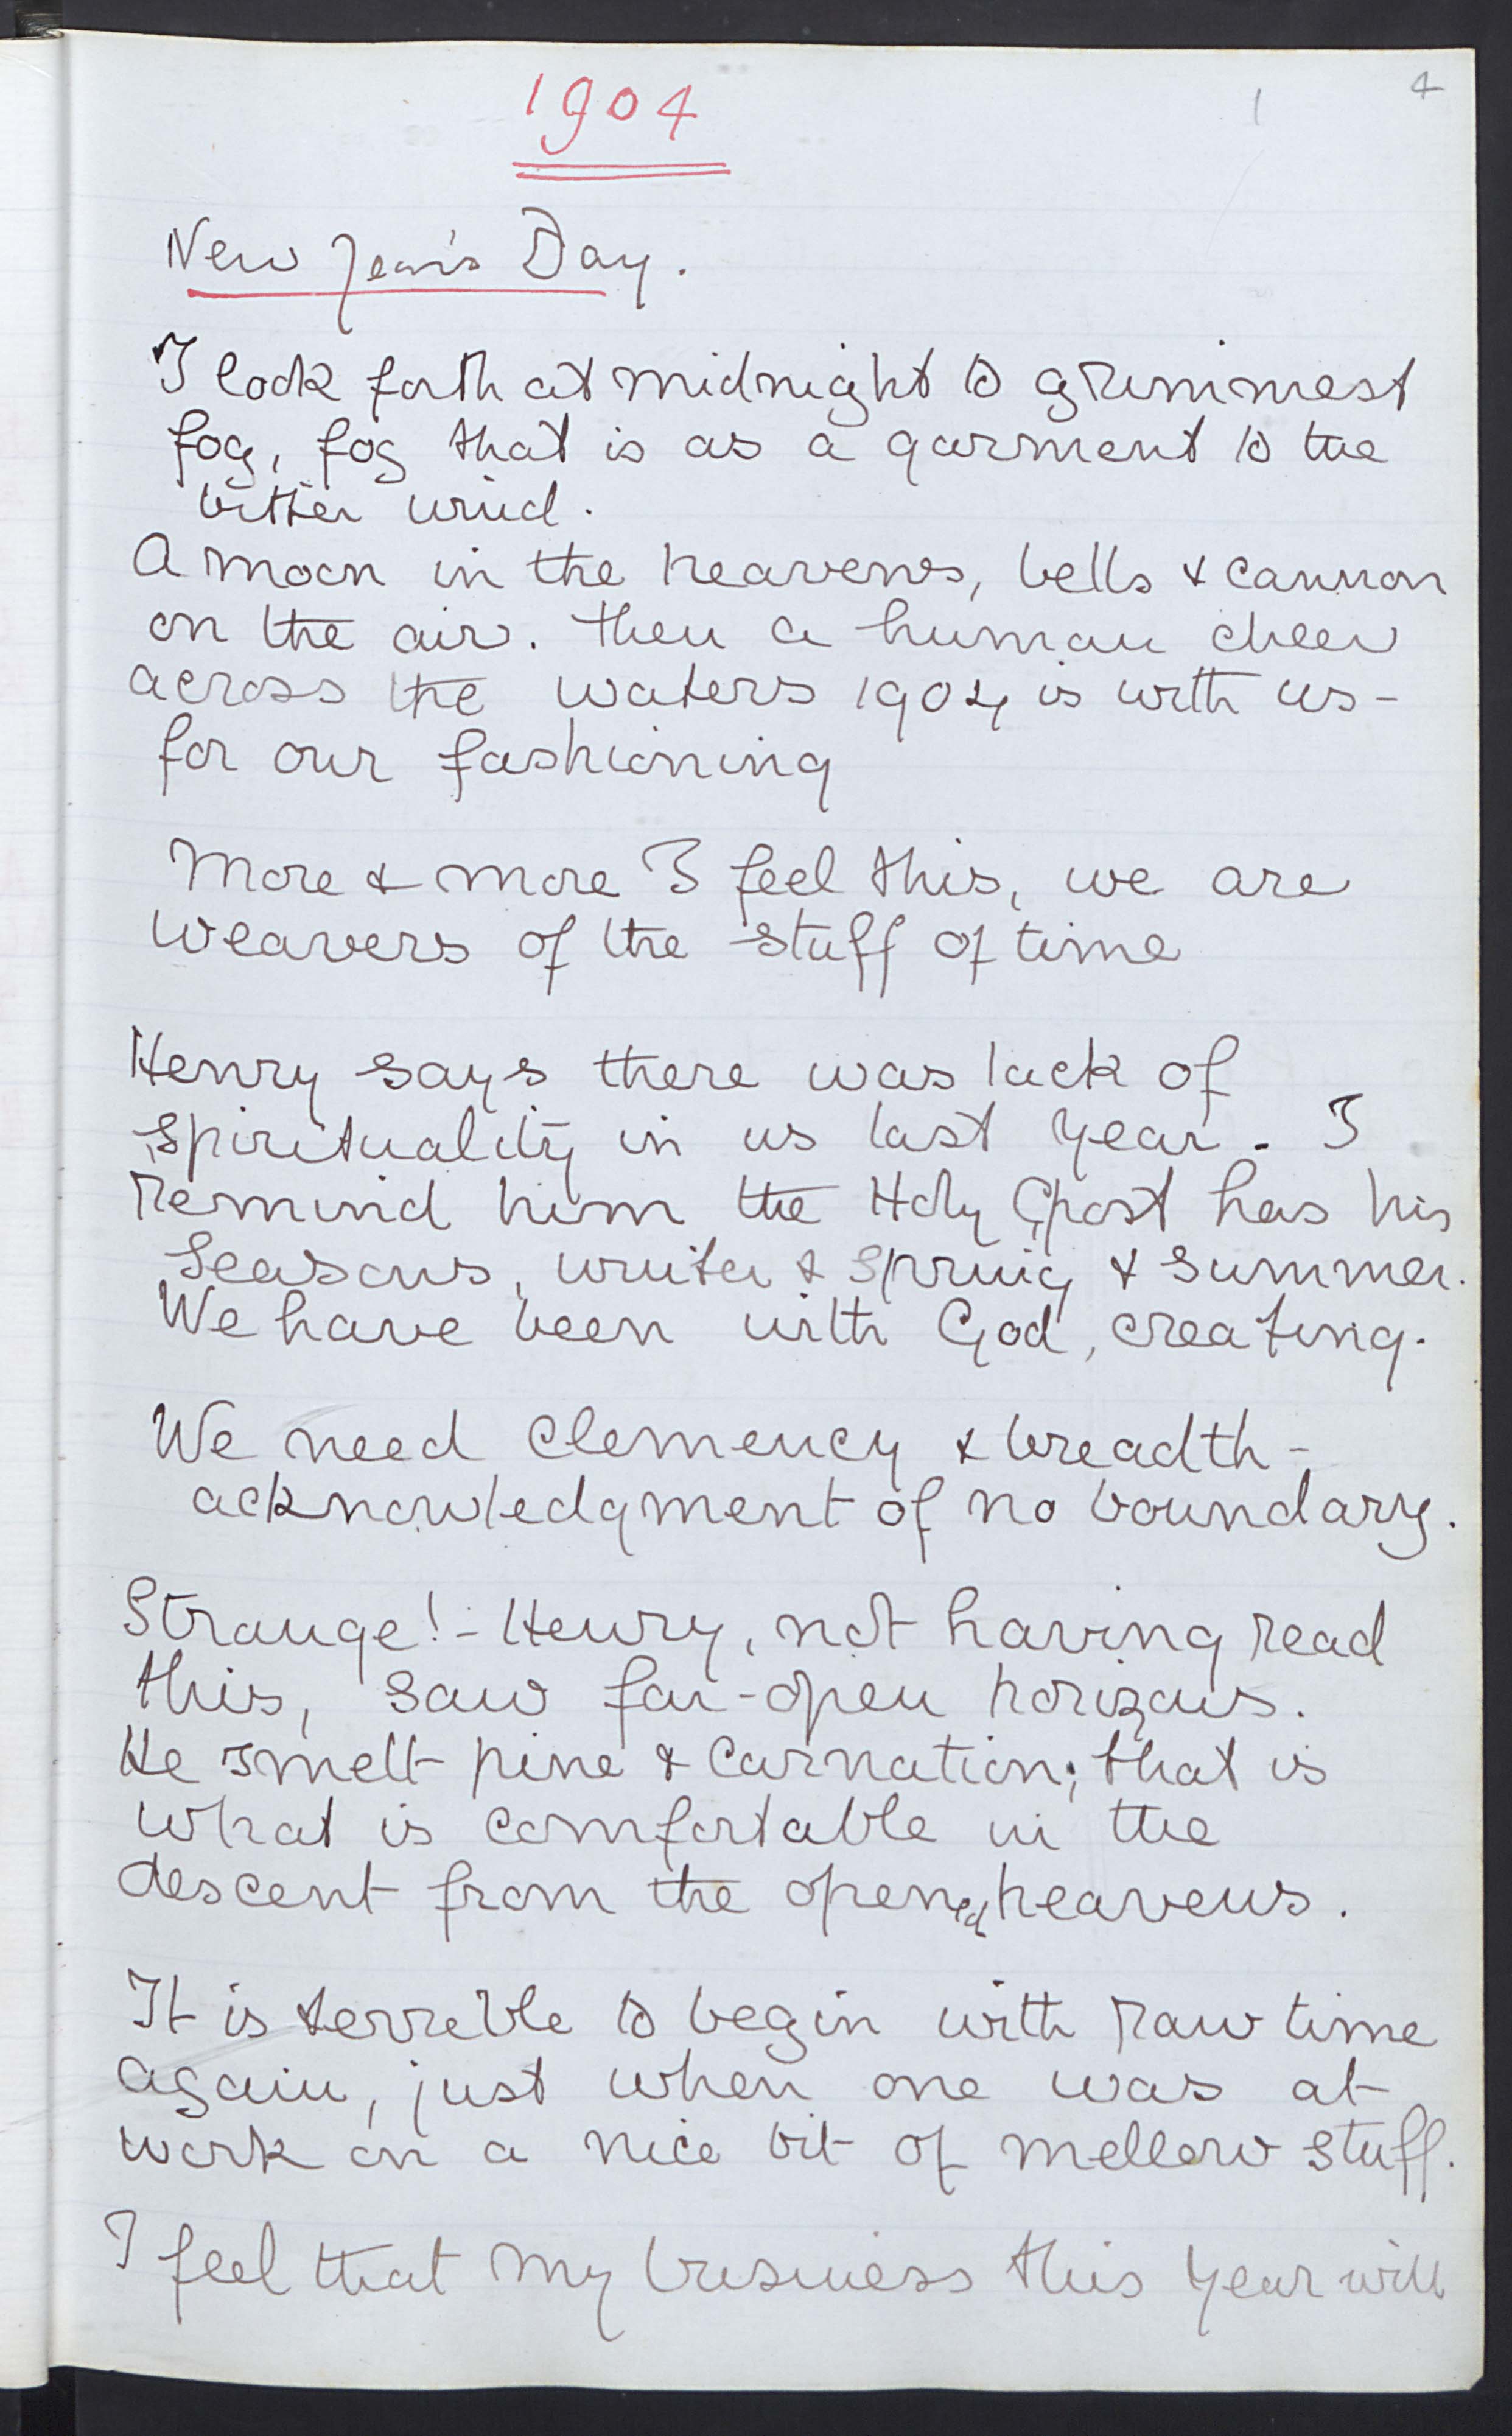 1904
1
4
New Year's Day.
I look forth at midnight to grimmest
fog, fog that is as a garment to the
bitter wind.
A moon in the heavens, bells & cannon
on the air. Then a human cheer
across the waters 1904 is with us -
for our fashioning
More & more I feel this, we are
weavers of the stuff of time
Henry says there was lack of
spirituality in us last year. I
remind him the Holy Ghost has his
seasons, winter & spring & summer.
We have been with God, creating.
We need clemency & breadth -
acknowledgment of no boundary.
Strange! - Henry, not having read
this, saw far-open horizons.
He smelt pine & carnation; that is
what is comfortable in the
descent from the opened heavens.
It is terrible to begin with raw time
again, just when one was at
work on a nice bit of mellow stuff.
I feel that my business this year will